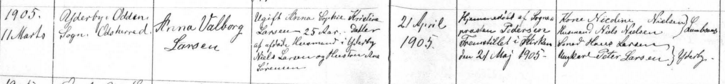 1905.
11 Marts
Yderby. Odden
Sogn. Odsherred
Anna Valborg
Larsen
Ugift Anna Sophie Kristine
Larsen 25 Aar. Datter
af afdøde Husmand i Yderby
Niels Larsen og Hustru Ane
Sørensen
21 April
1905.
Hjemmedøbt af Sogne
præsten Pedersen
Fremstillet i Kirken
den 21 Maj 1905.
Kone Nicoline Nielsen
Husmand Niels Nielsen
Smed Hans Larsen
Ungkarl Peter Larsen
Yderby.